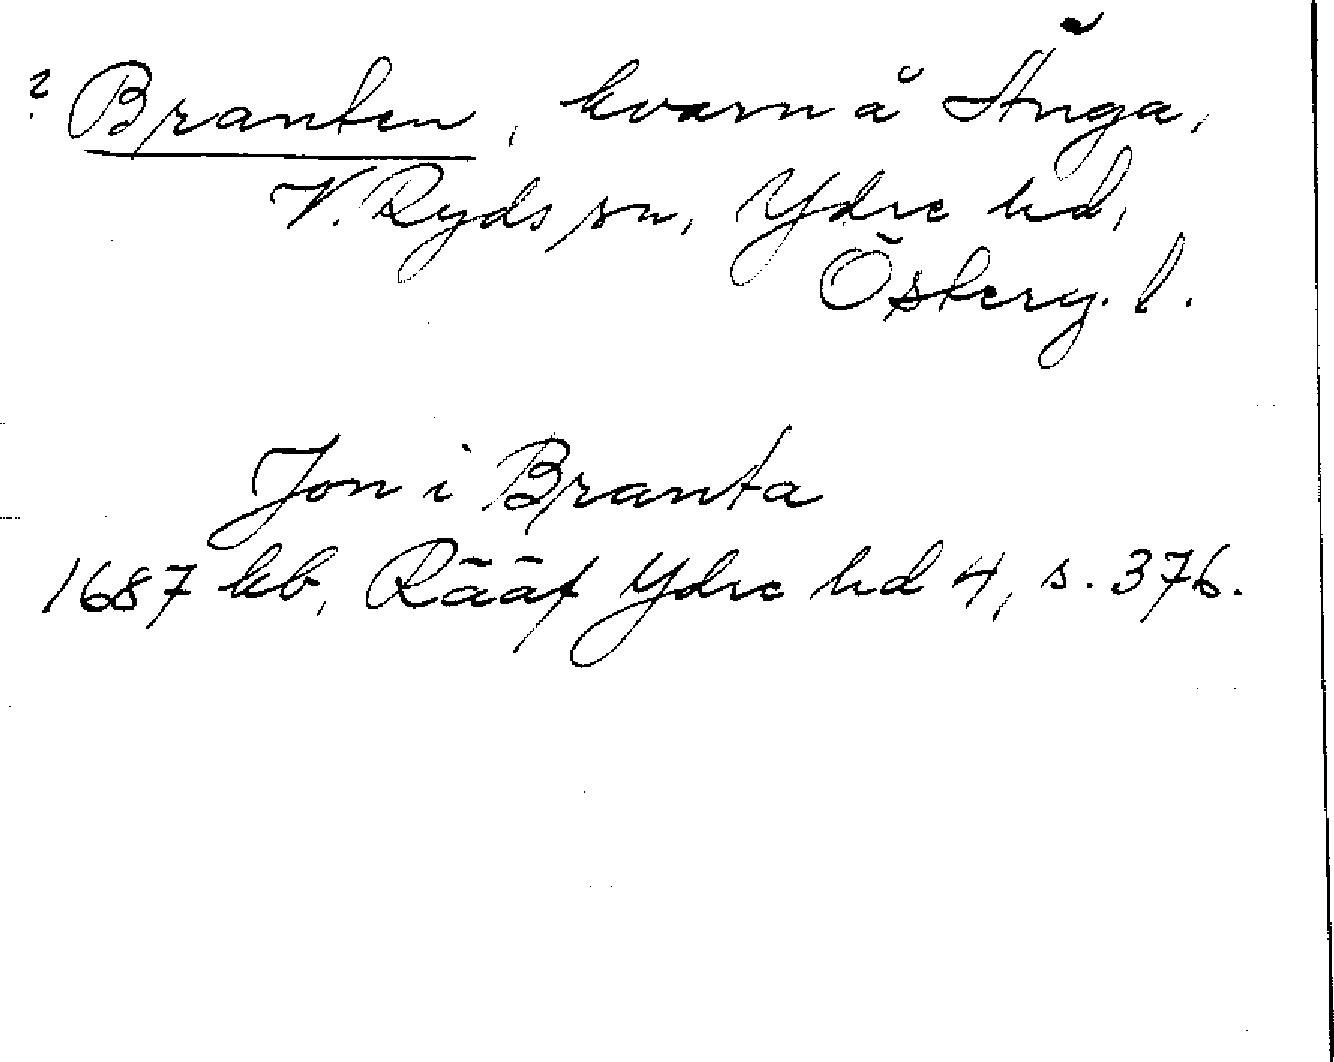 ? Branten, kvarn å
V. Ryds sn, Ydre hd,
Österg. l.
Jon i Branta
1687 kb, Rääf Ydre hd 4, s. 376.